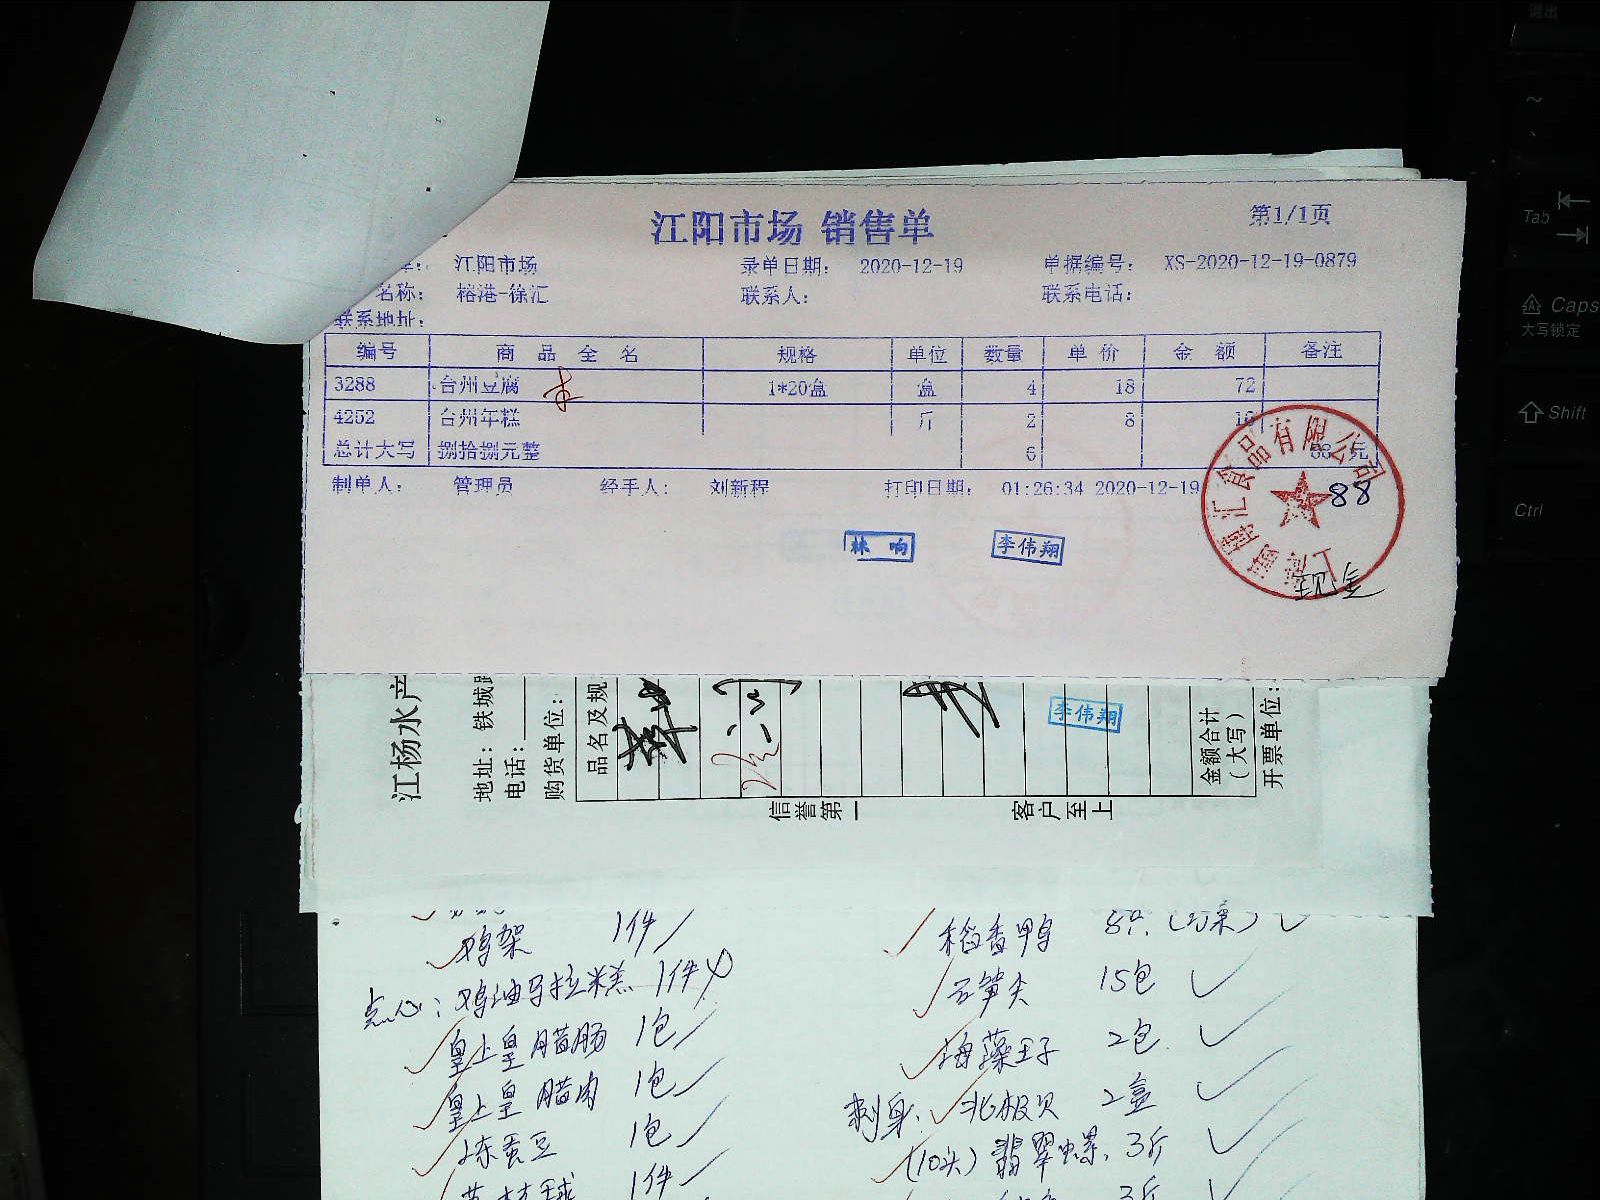 江阳市场 销售单
第1/1页
江阳市场 录单日期： 2020-12-19 单据编号： XS-2020-12-19-0879
名称： 榕港-徐汇 联系人： 联系电话：
联系地址：
编号 商品全名 规格 单位 数量 单价 金额 备注
3288 台州豆腐 1*20盒 盒 4 18 72
4252 台州年糕 斤 2 8 16
总计大写 捌拾捌元整 6 88 元
制单人： 管理员 经手人： 刘新程 打印日期： 01:26:34 2020-12-19
88
林响 李伟翔
食品有限公司
江杨水产
地址：铁城路
电话：
购货单位：
品名及规
李伟翔
金额合计
（大写）
开票单位：
信誉第一 客户至上
鸡架 1件
点心：鸡油马拉糕 1件
皇上皇腊肠 1包
皇上皇腊肉 1包
冻蚕豆 1包
1件
稻香鸭
玉笋尖 15包
海藻王子 2包
刺身：北极贝 2盒
(10头) 翡翠螺 3斤
3斤
退出
Tab
Caps
大写锁定
Shift
Ctrl